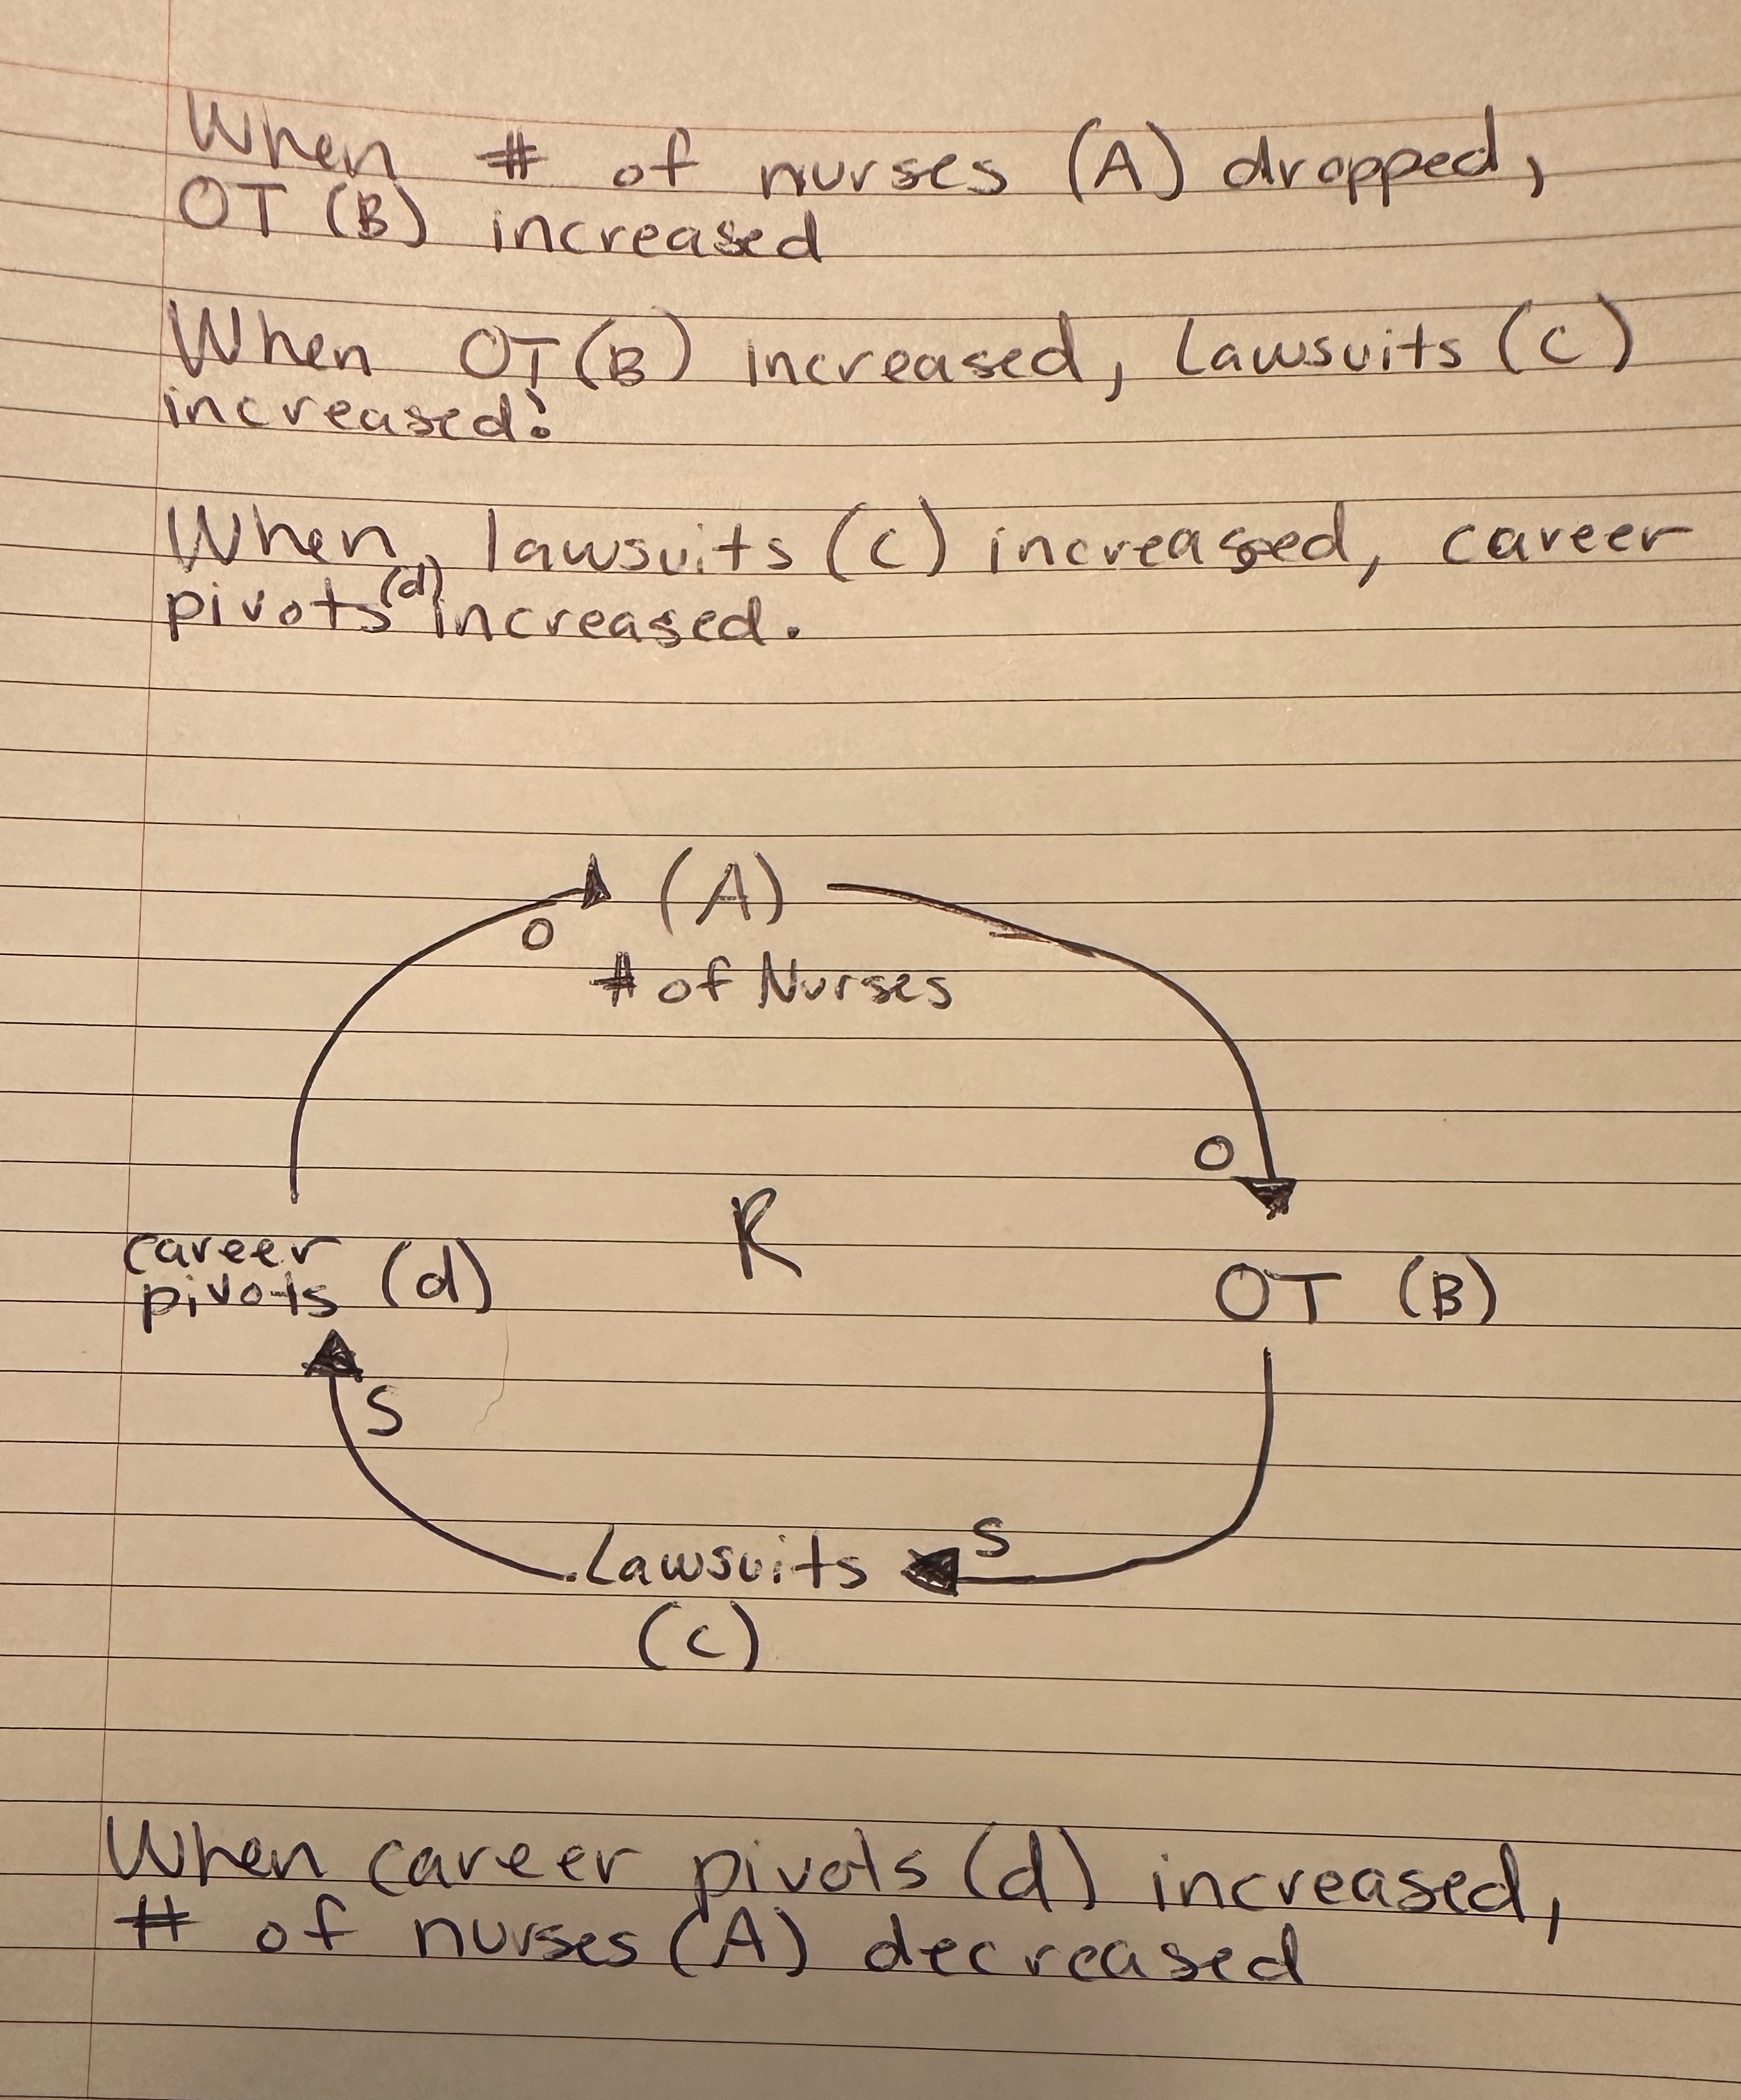 When # of nurses (A) dropped,
OT (B) increased
When OT (B) increased, Lawsuits (C)
increased!
When, lawsuits (C) increased, career
pivots (d) increased.
(A)
O
# of Nurses
O
R
career
pivots (d)
OT (B)
S
S
Lawsuits
(C)
When career pivots (d) increased,
# of nurses (A) decreased